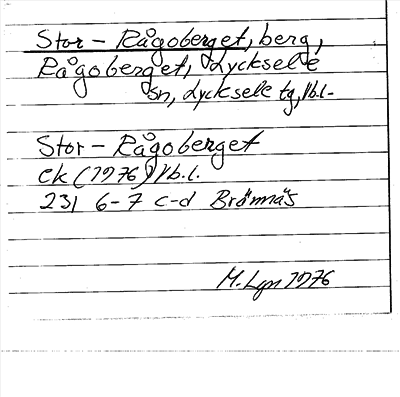 Stor-Rågoberget, berg,
Rågoberget, Lycksele
sn, Lycksele tg, Vb.l.
Stor-Rågoberget
ek (1976) Vb.l.
231 6-7 c-d Brännäs
M. Lgn 1976